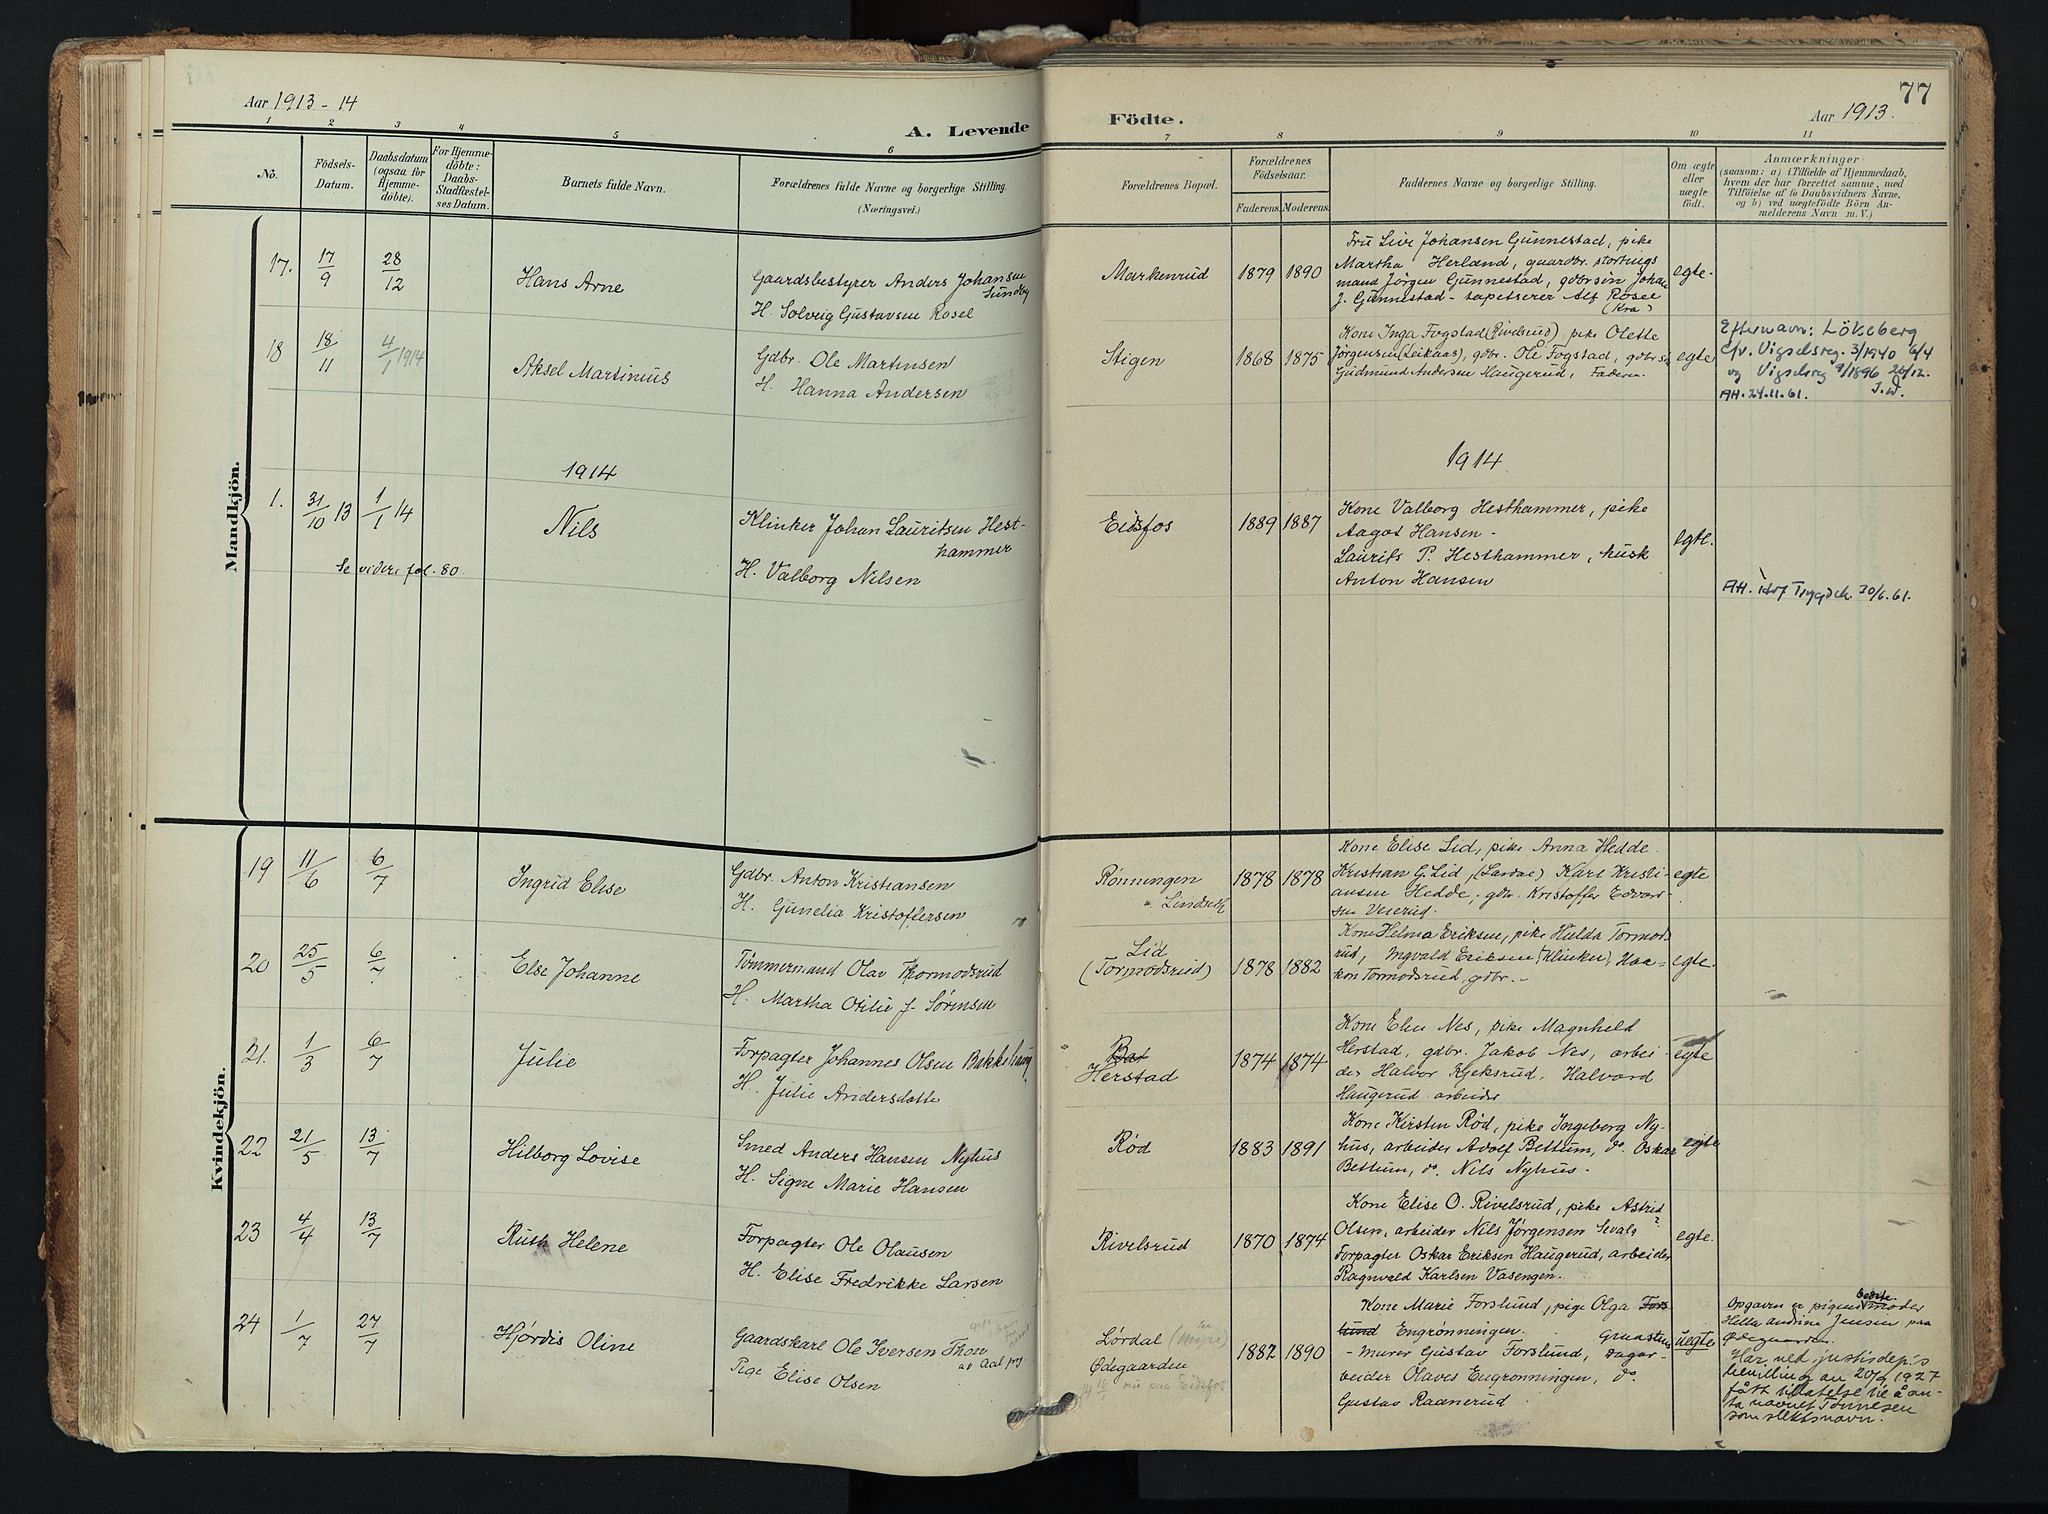 77
Aar 1913-14
A. Levende Födte.
Aar 1913.
1 2 3 4 5 6 7 8 9 10 11
No.
Födsels-
Datum.
Daabsdatum
(ogsaa for
Hjemme-
döbte).
For Hjemme-
döbte:
Daabs-
Stadfæstel-
ses Datum.
Barnets fulde Navn.
Forældrenes fulde Navne og borgerlige Stilling.
(Næringsvei.)
Forældrenes Bopæl.
Forældrenes
Födselsaar.
Faderens. Moderens.
Faddernes Navne og borgerlige Stilling.
Om ægte
eller
uægte
födt.
Anmærkninger
(saasom: a) i Tilfælde af Hjemmedaab,
hvem der har forrettet samme, med
Tilföielse af to Daabsvidners Navne,
og b) ved uægtefödte Börn An-
melderens Navn m. V.)
Mandkjön.
17. 17/9 28/12 Hans Arne
Gaardsbestyrer Anders Johansen
Sundby
H. Solveig Gustavsen Rosel
Markenrud 1879 1890
Fru Live Johansen Gunnestad, pike
Martha Herland, gaardbr. stortings
mand Jörgen Gunnestad, gdbrsön Johan
J. Gunnestad - tapetserer Alf Rosel
(Kra)
egte.
18 18/11 4/1 1914 Aksel Martinius
Gdbr. Ole Martinsen
H. Hanna Andersen
Stigen 1868 1875
Kone Inga Fogstad (Rivelsrud), pike Olette
Jørgensen (Leikaas), gdbr. Ole Fogstad, gdbrsøn
Gudmund Andersen Haugerud, Faderen.
egte
Efternavn: Lökeberg
c/v. Vigselsreg. 3/1940 6/4
og Vigselsreg 9/1896 26/12.
AH. 24.11.61. J.W.
1914
1914
1. 31/10 13 1/1 14 Nils
Klinker Johan Lauritsen Hest-
hammer
H. Valborg Nilsen
Se videre fol. 80
Eidsfos 1889 1887
Kone Valborg Hesthammer, pike
Aagot Hansen -
Laurits P. Hesthammer, husk
Anton Hansen
egte.
AH. Hof Trygdek. 30/6.61.
Kvindekjön.
19 11/6 6/7 Ingrid Elise
Gdbr. Anton Kristiansen
H. Gunelia Kristoffersen
Rønningen
u. Lindsek
1878 1878
Kone Elise Lid, pike Anna Hedde
Kristian G. Lid, (Lardal) Karl Kristi-
ansen Hedde; gdbr. Kristoffer Edvard-
sen Veierud.
egte
20 25/5 6/7 Else Johanne
Tømmermand Olav Thormodsrud
H. Martha Otilie J. Sørensen
Lid
(Tormodsrud)
1878 1882
Kone Helma Eriksen, pike Hulda Tormods-
rud, Ingvald Eriksen (Klinker), Haa-
kon Tormodsrud, gdbr. -
egte.
21. 1/3 6/7 Julie
Forpagter Johannes Olsen Bakkehaug
H. Julie Andersdatte
Bat
Herstad
1874 1874
Kone Elen Nes, pike Magnhild
Herstad, gdbr. Jakob Nes, arbei-
der Halvor Kjeksrud, Halvard
Haugerud arbeider
egte
22 21/5 13/7 Hilborg Lovise
Smed Anders Hansen Nyhus
H. Signe Marie Hansen
Rød 1883 1891
Kone Kirsten Rød, pike Ingeborg Ny-
hus, arbeider Adolf Bettum, do. Oskar
Bettum, do. Nils Nyhus.
egte
23 4/4 13/7 Ruth Helene
Forpagter Ole Olausen
H. Elise Fredrikke Larsen
Rivelsrud 1870 1874
Kone Elise O. Rivelsrud, pike Astrid
Olsen, arbeider Nils Jørgensen Sevals
Forpagter Oskar Eriksen Haugerud, arbeider
Ragnvald Karlsen Vasengen.
egte.
24 1/7 27/7 Hjördis Oline
Gaardskarl Ole Iversen Thon
Pige Elise Olsen
Lørdal (Myre)
Ødegaarden
nu paa Eidsfos
1882 1890
Kone Marie Forslund, pige Olga Fors-
lund Engrønningen. Graasten
- murer Gustav Forslund, dagar-
beider Olaves Engrønningen, do.
Gustav Raanerud
uegte
Opgaven er pigens moder
Helle Andrine Jensen paa
Ødegaarden.
Har ved justisdep.s
bevilling av 20/2 1927
fått tillatelse til å an-
ta navnet Tønnesen
som slektsnavn.